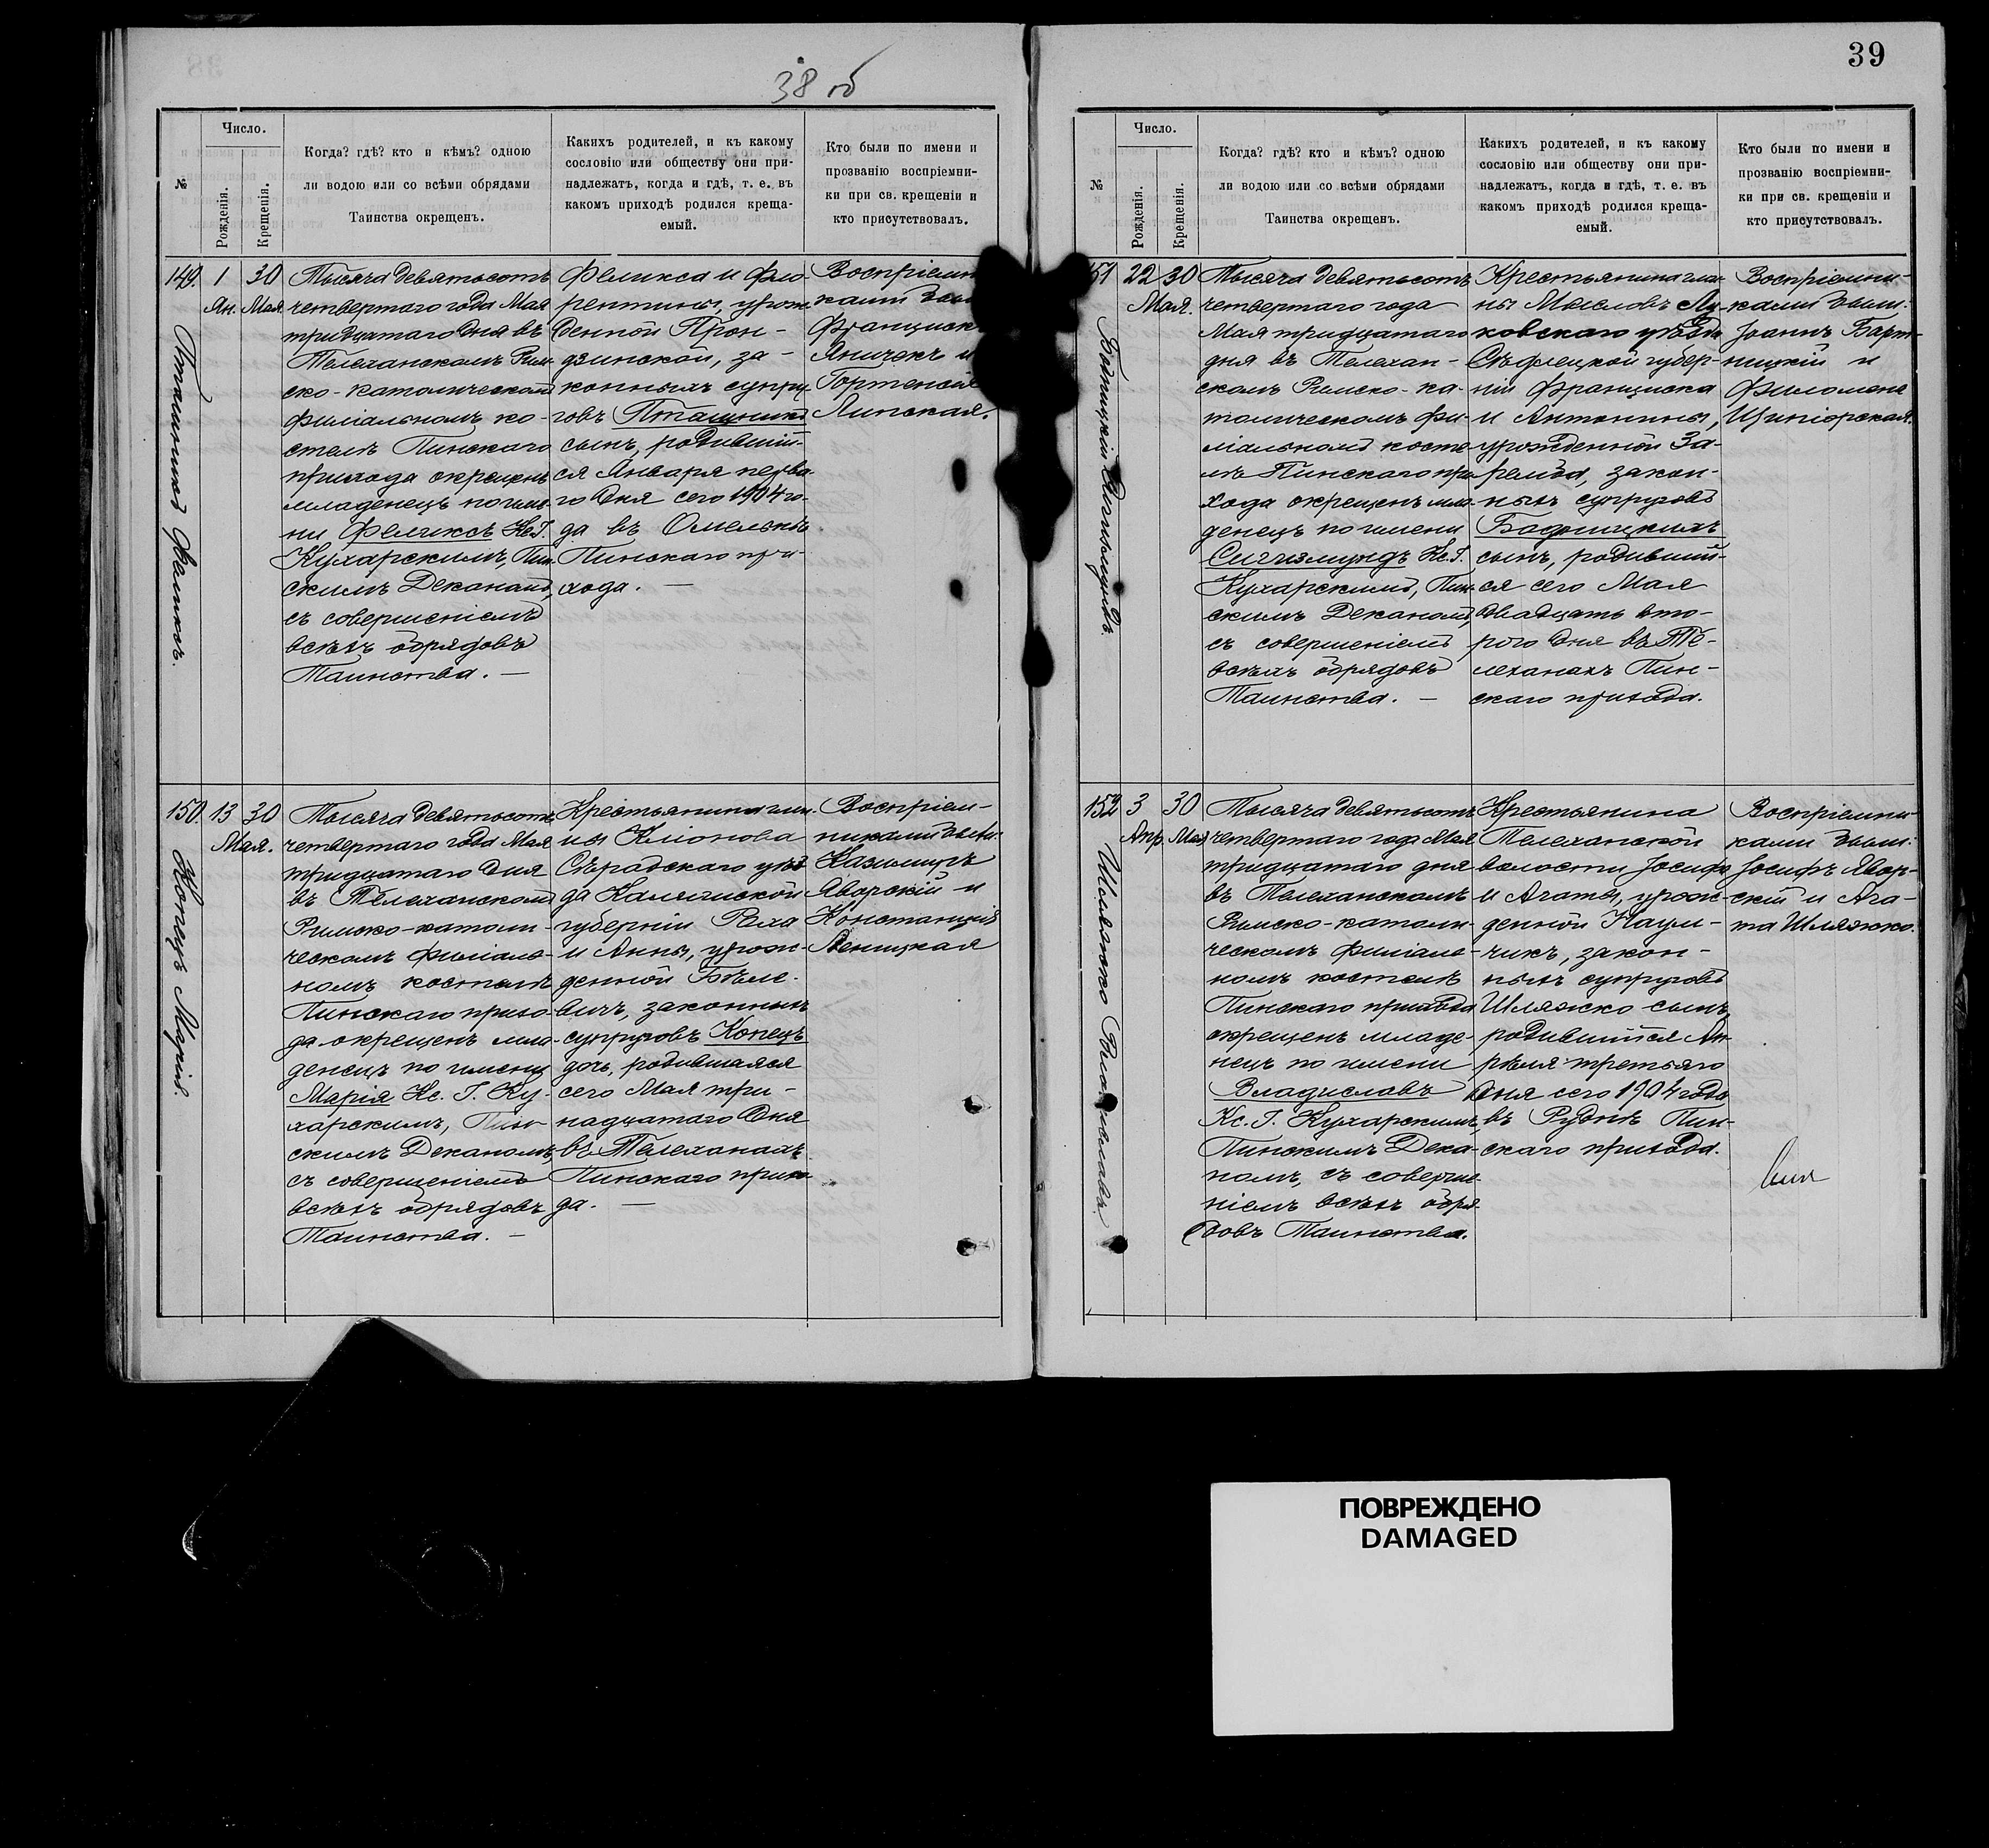 38 об
39
№
Число.
Рожденія.
Крещенія.
Когда? гдѣ? кто и кѣмъ? одною
ли водою или со всѣми обрядами
Таинства окрещенъ.
Какихъ родителей, и къ какому
сословію или обществу они при-
надлежатъ, когда и гдѣ, т. е. въ
какомъ приходѣ родился креща-
емый.
Кто были по имени и
прозванію воспріемни-
ки при св. крещеніи и
кто присутствовалъ.
149.
Феликсъ.
1
Ян.
30
Мая
Тысяча девятьсотъ
четвертаго года Мая
тридцатаго дня въ
Телеханскомъ Рим-
ско-католическомъ
филіальномъ ко-
стелѣ Пинскаго
прихода окрещенъ
младенецъ по име-
ни Феликсъ Кс. І.
Кухарскимъ, Пин-
скимъ Деканомъ,
съ совершеніемъ
всѣхъ обрядовъ
Таинства. —
Феликса и Фло-
рентины, урож-
денной Прон-
дзинской, за-
конныхъ супру-
говъ
сынъ, родивший-
ся Января перва-
го дня сего 1904 го-
да въ
Пинскаго при-
хода. —
Воспріемни
ками
Францискъ
и
Гортензія
Липская.
150.
Конецъ Марія.
13
Мая.
30
Тысяча девятьсотъ
четвертаго года Мая
тридцатаго дня
въ Телеханскомъ
Римско-католи-
ческомъ филіаль-
номъ костелѣ
Пинскаго прихо-
да окрещенъ мла-
денецъ по имени
Марія Кс. І. Ку-
харскимъ, Пин-
скимъ Деканомъ,
съ совершеніемъ
всѣхъ обрядовъ
Таинства. —
Крестьянина гми-
ны Кліонова
Сѣрадскаго уѣз-
да Калишской
губерніи Роха
и Анны, урож-
денной Бѣле-
вичъ, законныхъ
супруговъ Конецъ
дочь, родившаяся
сего Мая три-
надцатаго дня
въ Телеханахъ
Пинскаго прихо-
да. —
Воспріем-
никами были:
Казимиръ
Яворскій и
Констанція
Леницкая
№
Число.
Рожденія.
Крещенія.
Когда? гдѣ? кто и кѣмъ? одною
ли водою или со всѣми обрядами
Таинства окрещенъ.
Какихъ родителей, и къ какому
сословію или обществу они при-
надлежатъ, когда и гдѣ, т. е. въ
какомъ приходѣ родился креща-
емый.
Кто были по имени и
прозванію воспріемни-
ки при св. крещеніи и
кто присутствовалъ.
151
Сигизмундъ.
22
Мая.
30
Тысяча девятьсотъ
четвертаго года
Мая тридцатаго
дня въ Телехан-
скомъ Римско-ка-
толическомъ фи-
ліальномъ косте-
лѣ Пинскаго при-
хода окрещенъ мла-
денецъ по имени
Сигизмундъ Кс. І.
Кухарскимъ, Пин-
скимъ Деканомъ,
съ совершеніемъ
всѣхъ обрядовъ
Таинства. —
Крестьянина гми-
ны Мысловъ Лу-
ковскаго уѣзда
Сѣдлецкой губер-
ніи Франциска
и Антонины,
урожденной За-
ремба, закон-
ныхъ супруговъ
Бодницкихъ
сынъ, родивший-
ся сего Мая
двадцать вто-
рого дня въ Те-
леханахъ Пин-
скаго прихода.
Воспріемни-
ками были:
Іоаннъ Барт-
ницкій и
Филомена
152
Шляжко Владиславъ.
3
Апр.
30
Мая
Тысяча девятьсотъ
четвертаго года Мая
тридцатаго дня
въ Телеханскомъ
Римско-католи-
ческомъ филіаль-
номъ костелѣ
Пинскаго прихода
окрещенъ младе-
нецъ по имени
Владиславъ
Кс. І. Кухарскимъ,
Пинскимъ Дека-
номъ, съ соверше-
ніемъ всѣхъ обря-
довъ Таинства.
Крестьянина
Телеханской
волости Іосифа
и Агаты, урож-
денной Наум-
чикъ, закон-
ныхъ супруговъ
Шляжко сынъ,
родившийся Ап-
рѣля третьяго
дня сего 1904 года
въ Руднѣ Пин-
скаго прихода.
Воспріемни-
ками были:
Іосифъ Явор-
скій и Ага-
та Шляжко.
ПОВРЕЖДЕНО
DAMAGED